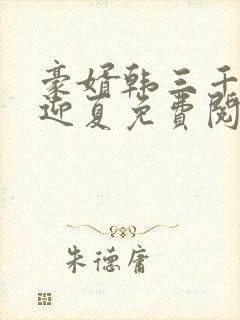 豪婿韩三千
迎夏免费阅
朱德庸